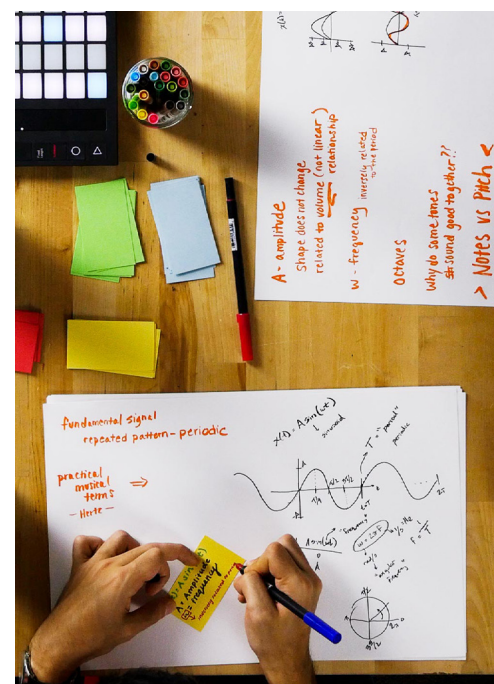 x(t)=
A = amplitude
shape does not change
related to volume (not linear)
relationship
w - frequency inversely related
to the period
octaves
why do some tones
sound good together??
> Notes vs Pitch <
fundamental signal
repeated pattern - periodic
practical
musical
terms
- Hertz -
x(t) = A sin(wt)
sinusoid
T = "period"
periodic
A
t
2π
frequency
A sin(wt)
w = 2πF
rad/s
"angular
frequency"
A = Amplitude
= frequency
inversely related to